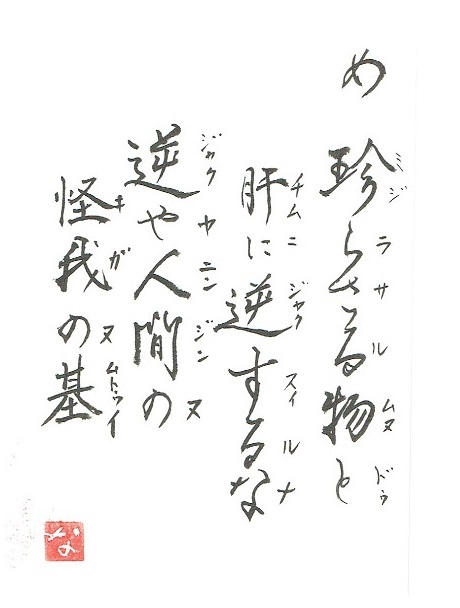 め
珍らさる物と
ミジラサルムヌドゥ
肝に逆するな
チムニジャクスィルナ
逆や人間の
ジャクヤニンジンヌ
怪我の基
キガヌムトゥイ